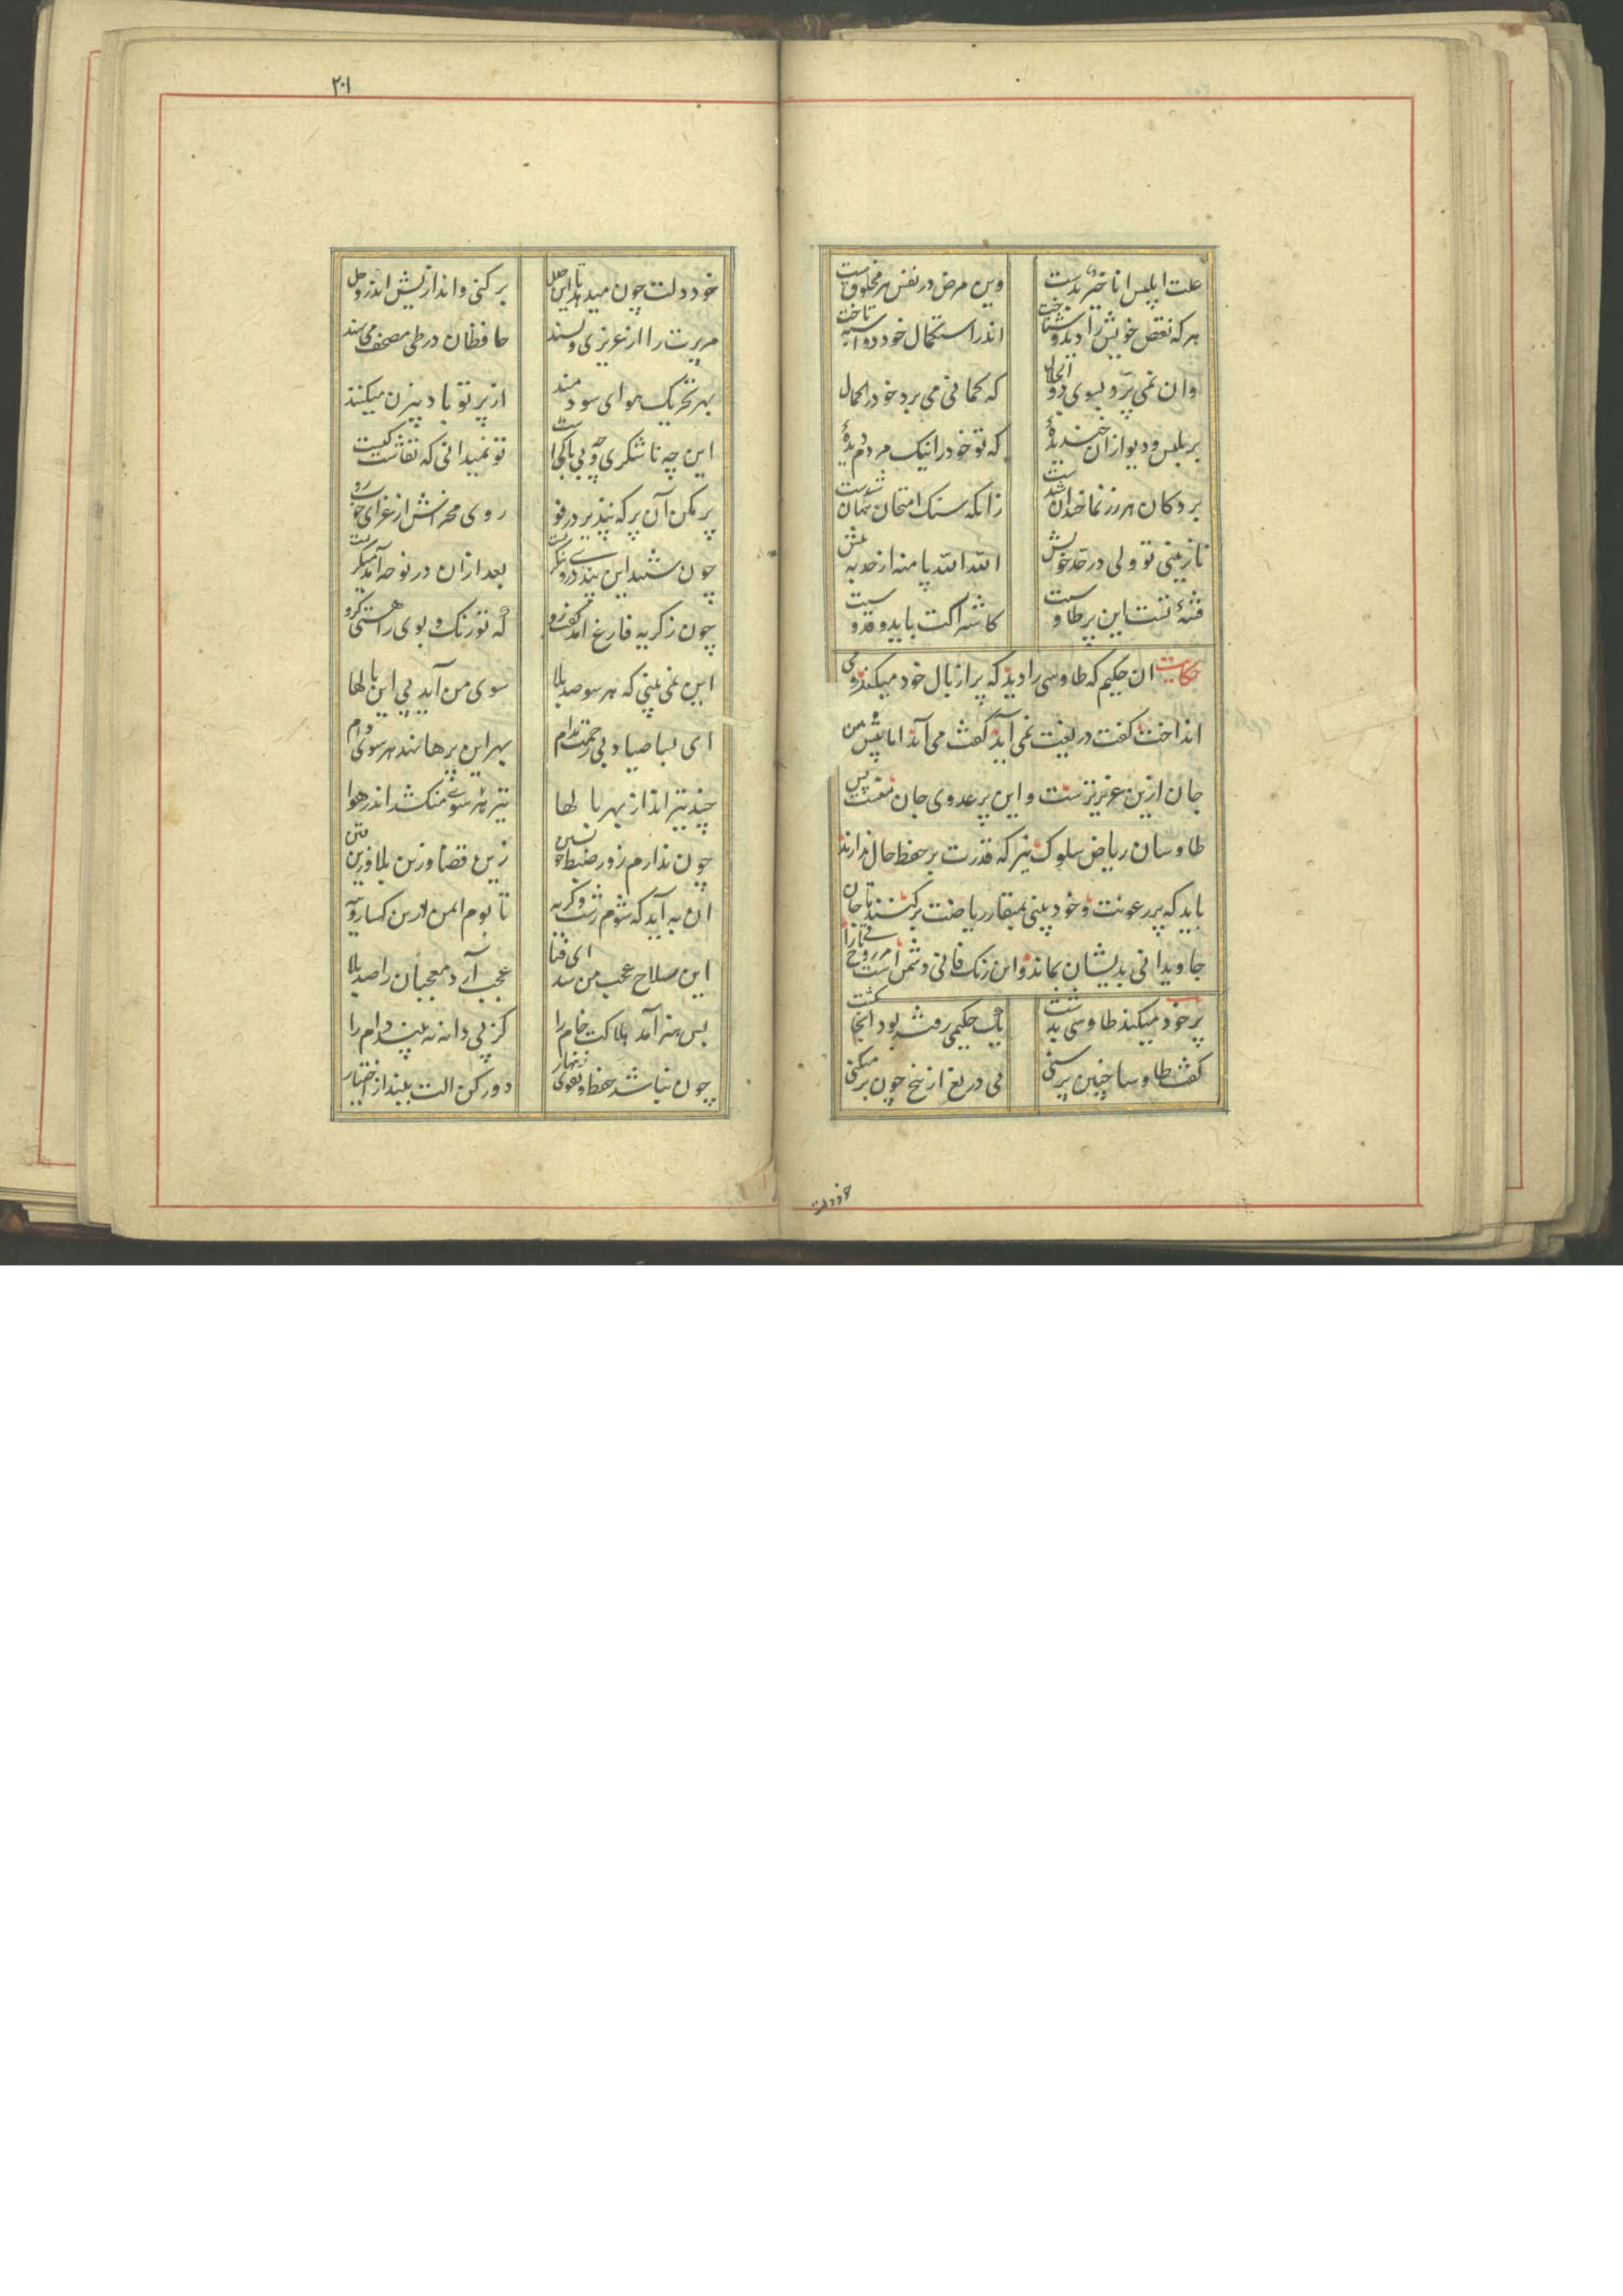 علت ابلیس انا خیر بدست وین مرض در نفس هر مخلوق هست
هر که نقص خویش را دید و شناخت اندر استکمال خود دو اسبه تاخت
زان نمی پرد بسوی ذو الجلال که گمانی می برد خود را کمال
بر بلیس و دیو ازان خندیدهٔ که تو خود را نیک مردم دیدهٔ
بر دکان هر زرنما خندان شدست زانکه سنک امتحان پنهان شدست
نازنینی تو ولی در حد خویش الله الله پا منه از حد به پیش
فتنهٔ تست این پر طاوسیت کاشتراکت باید و قدوسیت
حکایت ان حکیم که طاوسی را دید که پر از بال خود میکند و می
انداخت کفت دریغت نمی آید گفت می آید اما پیش من
جان ازین عزیزترست و این پر عدوی جان منست پس
طاوسان ریاض سلوک نیز که قدرت بر حفظ حال ندارند
باید که پر رعونت و خود بینی بمنقار ریاضت برکنند تا جان
جاویدانی بدیشان بماند و این رنک فانی دشمن است
پر خود میکند طاوسی بدشت یک حکیمی رفته بود آنجا بکشت
کفت طاوسا چنین پر سنی بی دریغ از بیخ چون بر میکنی
خود دلت
۲۰۱
خود دلت چون میدهد تا این حلل بر کنی و اندازیش اندر وحل
هر پرت را از عزیزی و پسند حافظان در طی مصحف می نهند
بهر تحریک هوای سودمند از پر تو باد بیزن میکنند
این چه ناشکری و چه بی باکی است تو نمیدانی که نقاشش کیست
پر مکن آن پر که نپذیرد رفو روی مخراش از عزای خوب رو
چون شنید این پند در وی بنگریست بعد ازان در نوحه آمد میگریست
چون ز کریه فارغ امد گفت رو که تو رنک و بوی را هستی کرو
این نمی بینی که هر سو صد بلا سوی من آید پی این بالها
ای بسا صیاد بی رحمت مدام بهر این پرها نهد هر سوی دام
چند تیر انداز بهر بالها تیر هر سوی من کشد اندر هوا
چون ندارم زور ضبط خویشتن زین قضا و زین بلا و زین فتن
ان به آید که شوم زشت و کریه تا بوم ایمن درین کهسار و تیه
این سلاح عجب من شد ای فتا عجب آرد معجبان را صد بلا
پس هنر آمد هلاکت خام را کز پی دانه نه بیند دام را
چون نباشد حفظ و تقوی زینهار دور کن الت بینداز اختیار